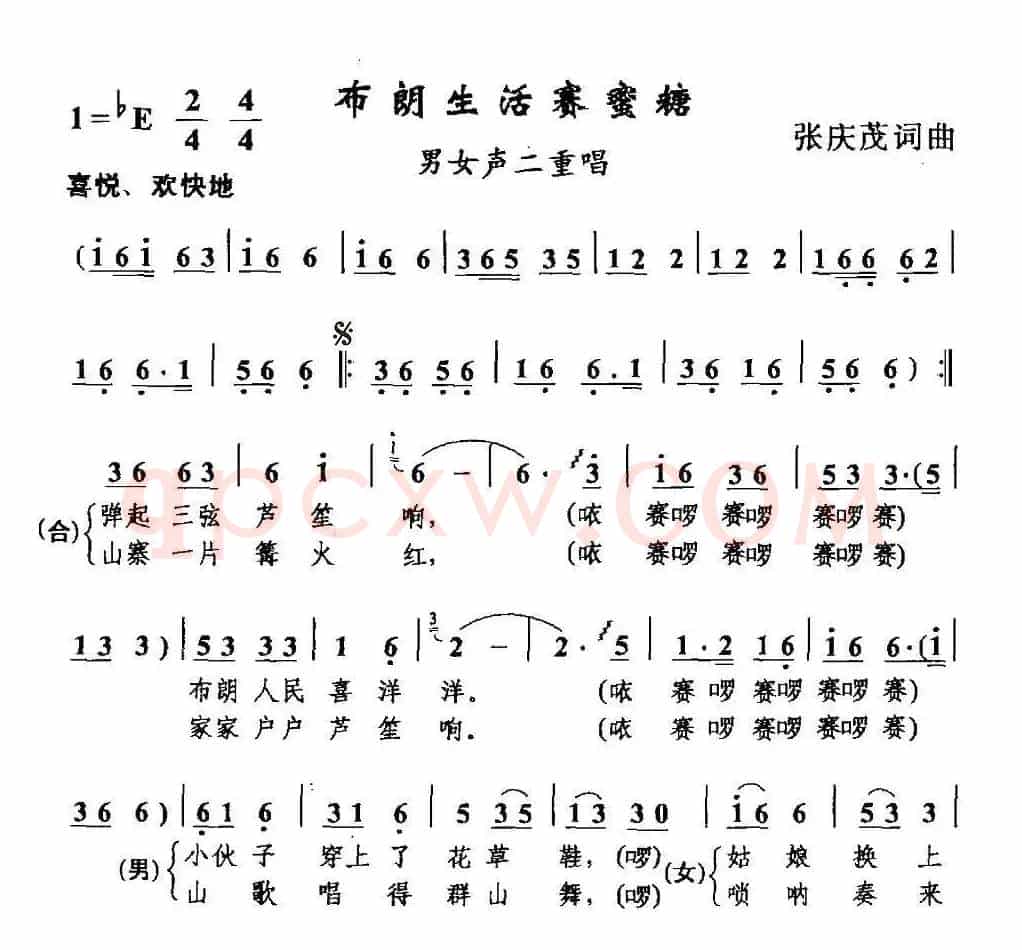 布朗生活赛蜜糖
1=♭E 2/4 4/4
男女声二重唱
张庆茂词曲
喜悦、欢快地
(i6i 63|i6 6|i6 6|365 35|12 2|12 2|166 62|
16 6·1|56 6‖:36 56|16 6.1|36 16|56 6):‖
36 63|6 i|6 –|6· 3|i6 36|53 3·(5|
(合) 弹起 三弦 芦 笙 响, (哝 赛啰 赛啰 赛啰 赛)
山寨 一片 篝 火 红, (哝 赛啰 赛啰 赛啰 赛)
13 3)|53 33|1 6|2 –|2· 5|1·2 16|i6 6·(i|
布朗 人民 喜 洋 洋。 (哝 赛 啰 赛啰 赛啰 赛)
家家 户户 芦 笙 响。 (哝 赛 啰 赛啰 赛啰 赛)
36 6)|61 6|31 6|5 35|13 30|i6 6|53 3|
(男) 小伙 子 穿上 了 花 草 鞋, (啰) (女) 姑 娘 换 上
山 歌 唱 得 群 山 舞, (啰) 唢 呐 奏 来
qpcxw.COM